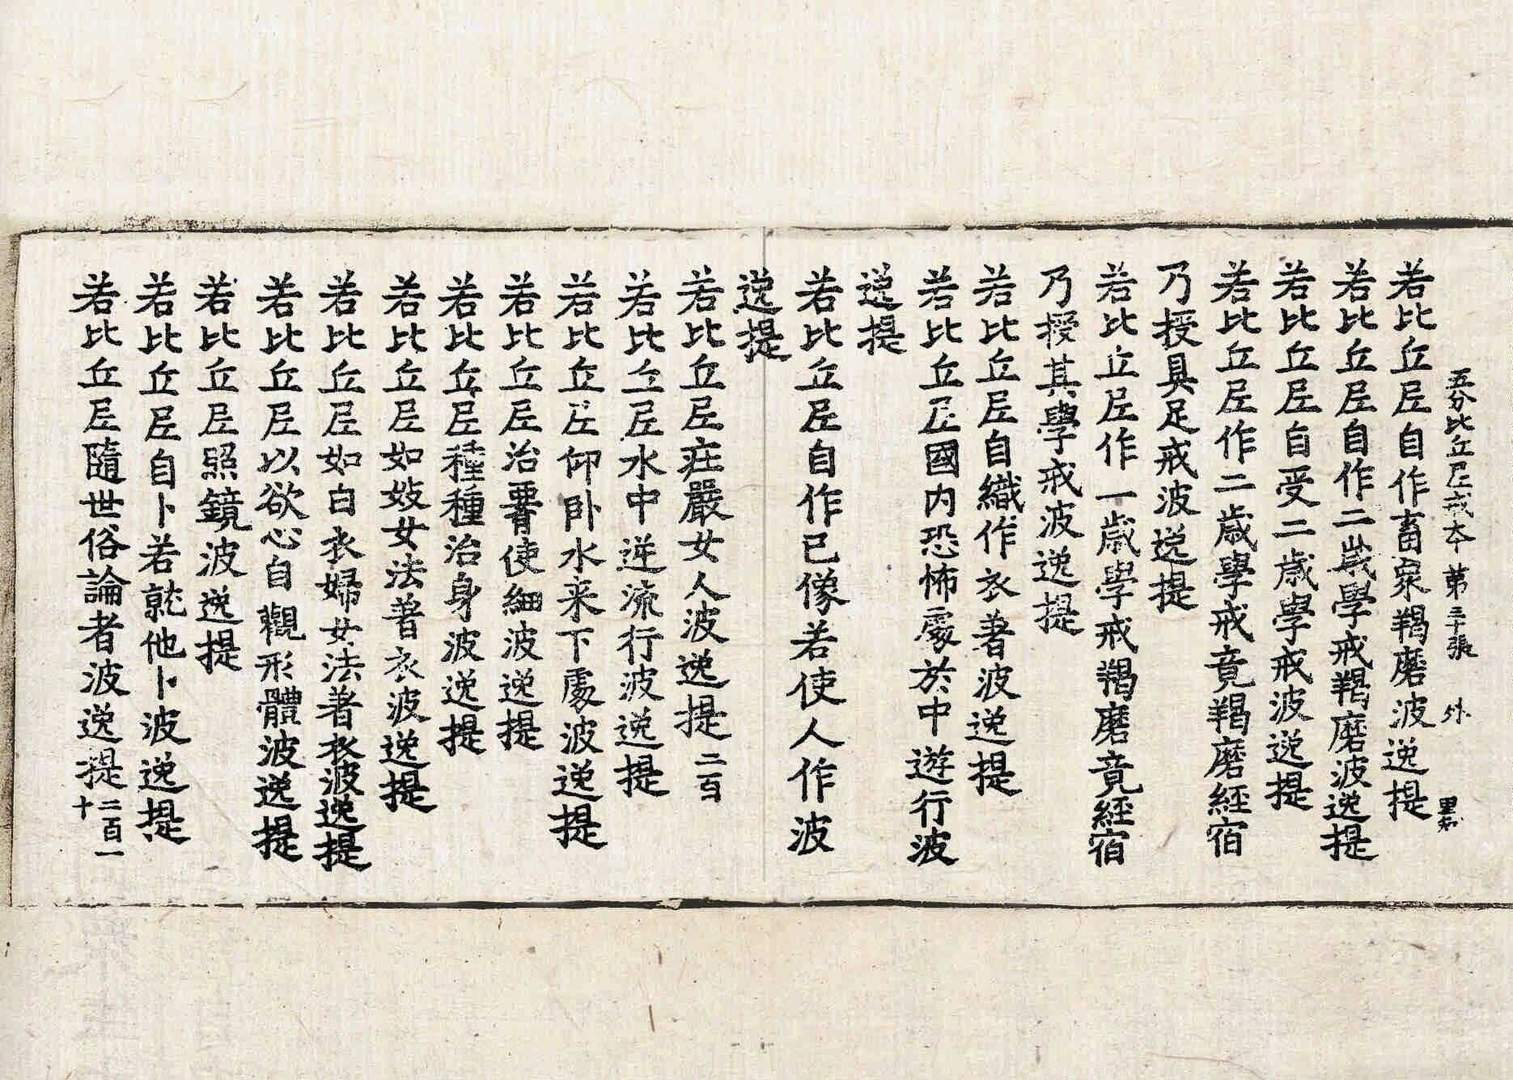 五分比丘尼戒本 第三十張 外
若比丘尼自作畜衆羯磨波逸提
若比丘尼自作二歲學戒羯磨波逸提
若比丘尼自受二歲學戒波逸提
若比丘尼作二歲學戒竟羯磨經宿
乃授具足戒波逸提
若比丘尼作一歲學戒羯磨竟經宿
乃授其學戒波逸提
若比丘尼自織作衣著波逸提
若比丘尼國内恐怖處於中遊行波
逸提
若比丘尼自作己像若使人作波
逸提
若比丘尼莊嚴女人波逸提 二百
若比丘尼水中逆流行波逸提
若比丘尼仰卧水来下處波逸提
若比丘尼治腰使細波逸提
若比丘尼種種治身波逸提
若比丘尼如妓女法著衣波逸提
若比丘尼如白衣婦女法著衣波逸提
若比丘尼以欲心自觀形體波逸提
若比丘尼照鏡波逸提
若比丘尼自卜若就他卜波逸提
若比丘尼隨世俗論者波逸提 二百一十